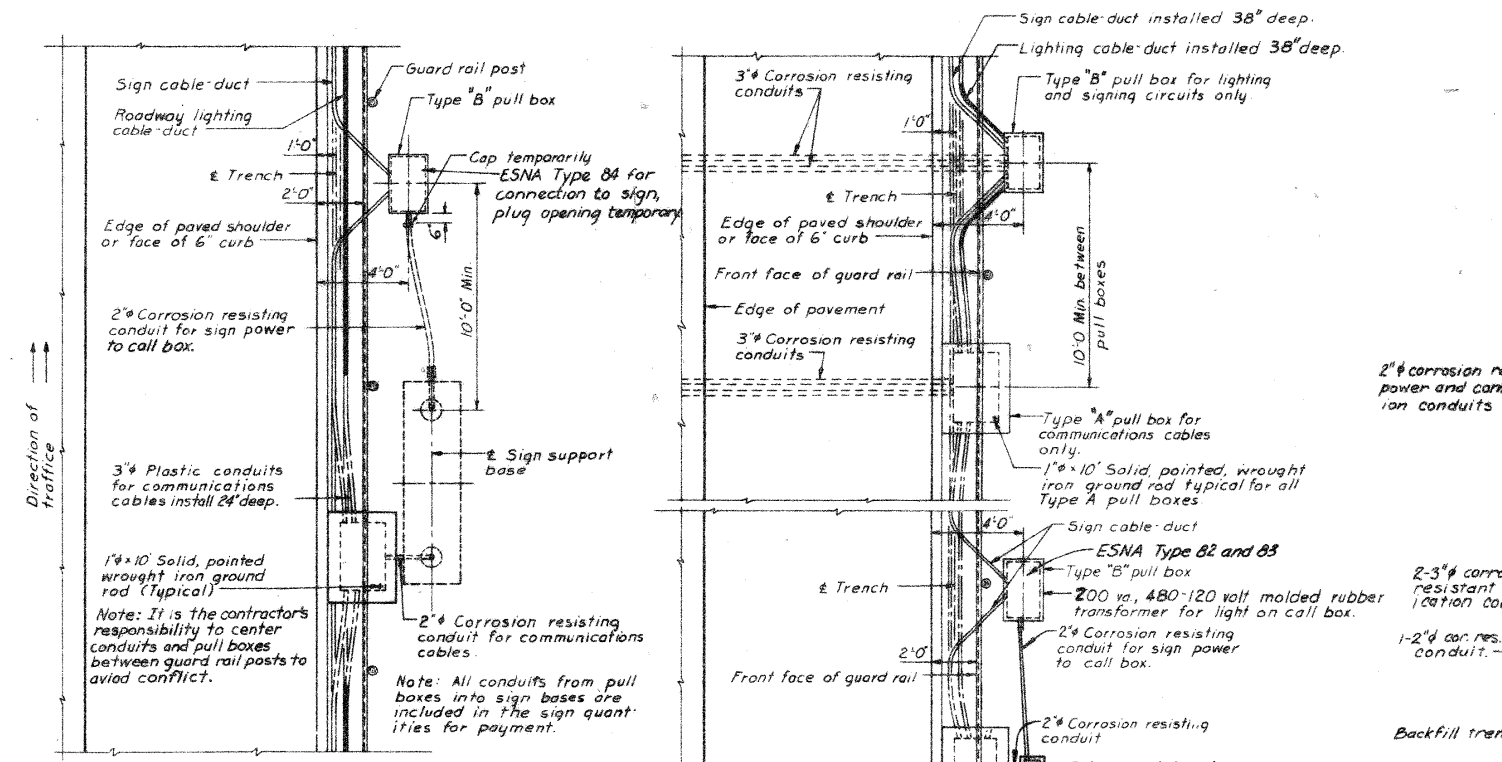 Sign cable-duct
Roadway lighting
cable-duct
1'-0"
℄ Trench
2'-0"
Edge of paved shoulder
or face of 6" curb
4'-0"
2"ϕ Corrosion resisting
conduit for sign power
to call box.
Direction of
traffice
3"ϕ Plastic conduits
for communications
cables install 24" deep.
1"ϕ×10' Solid, pointed
wrought iron ground
rod (Typical)
Note: It is the contractor's
responsibility to center
conduits and pull boxes
between guard rail posts to
aviod conflict.
Guard rail post
Type "B" pull box
Cap temporarily
ESNA Type 84 for
connection to sign,
plug opening temporary
6"
10'-0" Min.
℄ Sign support
base
2"ϕ Corrosion resisting
conduit for communications
cables.
Note: All conduits from pull
boxes into sign bases are
included in the sign quant-
ities for payment.
Sign cable-duct installed 38" deep.
Lighting cable-duct installed 38" deep.
3"ϕ Corrosion resisting
conduits
Type "B" pull box for lighting
and signing circuits only.
1'-0"
℄ Trench
4'-0"
Edge of paved shoulder
or face of 6" curb
Front face of guard rail
Edge of pavement
10'-0 Min. between
pull boxes
3"ϕ Corrosion resisting
conduits
Type "A" pull box for
communications cables
only.
1"ϕ×10' Solid, pointed, wrought
iron ground rod typical for all
Type A pull boxes
4'-0"
Sign cable-duct
ESNA Type 82 and 83
℄ Trench
Type "B" pull box
200 va., 480-120 volt molded rubber
transformer for light on call box.
2"ϕ Corrosion resisting
conduit for sign power
to call box.
2'-0"
Front face of guard rail
2"ϕ Corrosion resisting
conduit
2"ϕ corrosion
power and
ion conduits
2-3"ϕ
resistant
1-2"ϕ cor. res.
conduit.
Backfill